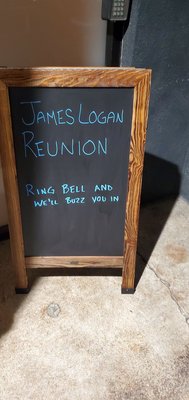 James Logan
Reunion
Ring Bell and
we'll buzz you in